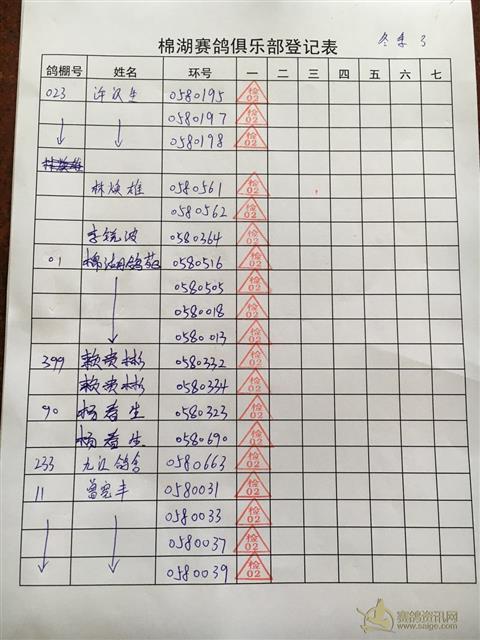 棉湖赛鸽俱乐部登记表 冬季 3
鸽棚号 姓名 环号 一 二 三 四 五 六 七
023 许汉生 0580195 检02
0580197 检02
0580198 检02
林焕雄
林焕雄 0580561 检02
0580562 检02
李锐波 0580364 检02
01 棉湖鸽苑 0580516 检02
0580505 检02
0580018 检02
0580013 检02
399 赖贵彬 0580332 检02
赖贵彬 0580334 检02
90 杨春生 0580323 检02
杨春生 0580690 检02
233 九江鸽舍 0580663 检02
11 曾宪丰 0580031 检02
0580033 检02
0580037 检02
0580039 检02
赛鸽资讯网
www.saige.com